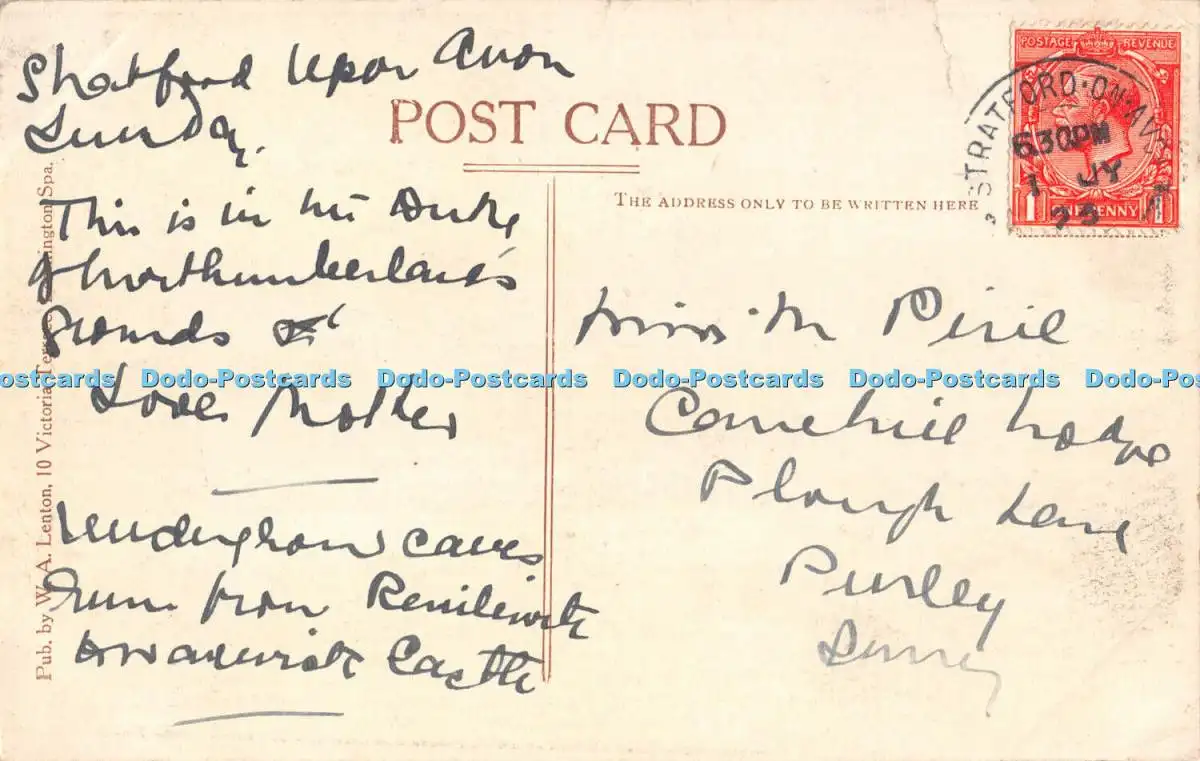 Stratford Upon Avon
Sunday.
This is in the Duke
of Northumberland's
grounds
Love Mother
Underground caves
run from Kenilworth
to Warwick Castle
POST CARD
THE ADDRESS ONLY TO BE WRITTEN HERE
POSTAGE REVENUE
1 ONE PENNY 1
STRATFORD·ON·AVON
6.30PM
1 JY
23
Miss M Pirie
Lodge
Plough Lane
Purley
Surrey
Pub. by W. A. Lenton, 10 Victoria Terrace, Leamington Spa.
Dodo-Postcards Dodo-Postcards Dodo-Postcards Dodo-Postcards